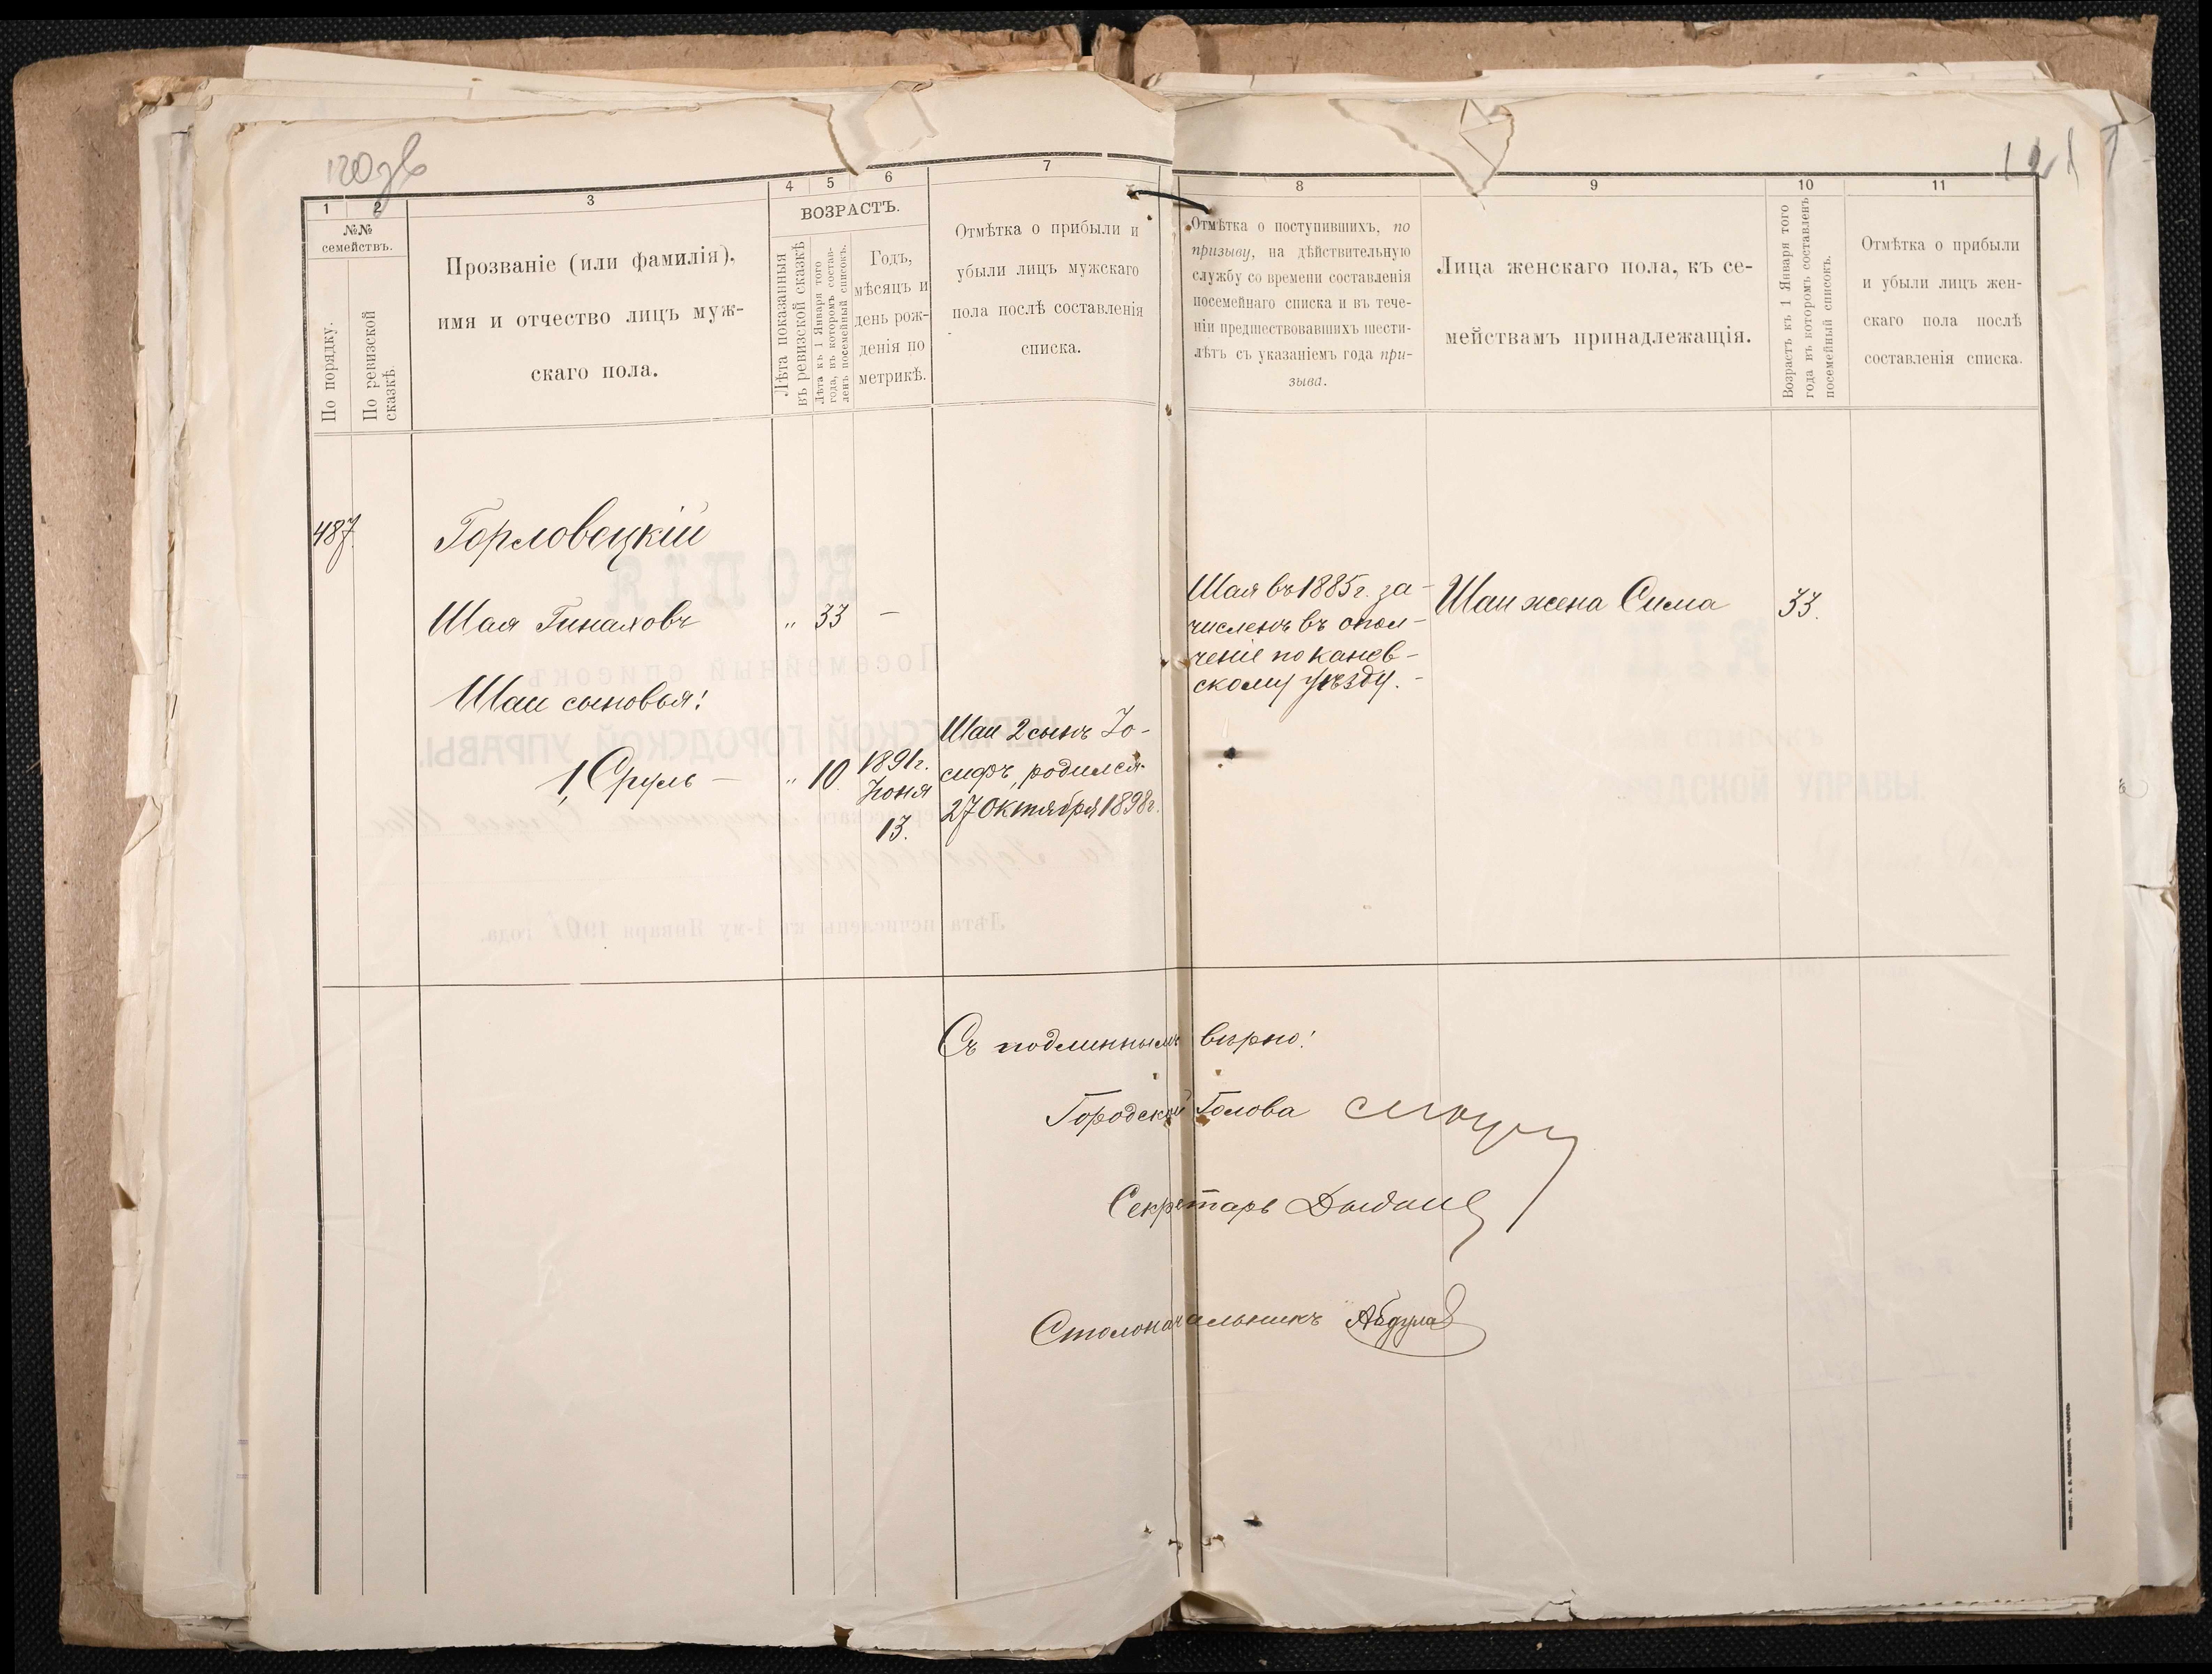 120 зв
121
1
2
3
4
5
6
7
8
9
10
11
№№
семействъ.
По порядку.
По ревизской
сказкѣ.
Прозваніе (или фамилія),
имя и отчество лицъ муж-
скаго пола.
ВОЗРАСТЪ.
Лѣта показанныя
въ ревизской сказкѣ
Лѣта къ 1 Января того
года, въ которомъ состав-
ленъ посемейный списокъ.
Годъ,
мѣсяцъ и
день рож-
денія по
метрикѣ.
Отмѣтка о прибыли и
убыли лицъ мужскаго
пола послѣ составленія
списка.
Отмѣтка о поступившихъ, по
призыву, на дѣйствительную
службу со времени составленія
посемейнаго списка и въ тече-
ніи предшествовавшихъ шести-
лѣтъ съ указаніемъ года при-
зыва.
Лица женскаго пола, къ се-
мействамъ принадлежащія.
Возрастъ къ 1 Января того
года въ которомъ составленъ
посемейный списокъ.
Отмѣтка о прибыли
и убыли лицъ жен-
скаго пола послѣ
составленія списка.
487.
Горловецкій
Шая Пинаховъ „ 33 —
Шаи сыновья:
1, Сруль — „ 10
1891г.
Іюня
13.
Шаи 2 сынъ Іо-
сифъ, родился
27 Октября 1898г.
Шая въ 1885г. за-
численъ въ опол-
ченіе по Канев-
скому уѣзду. -
Шаи жена Сима 33.
Съ подлиннымъ вѣрно:
Городской Голова
Секретарь
Столоначальникъ